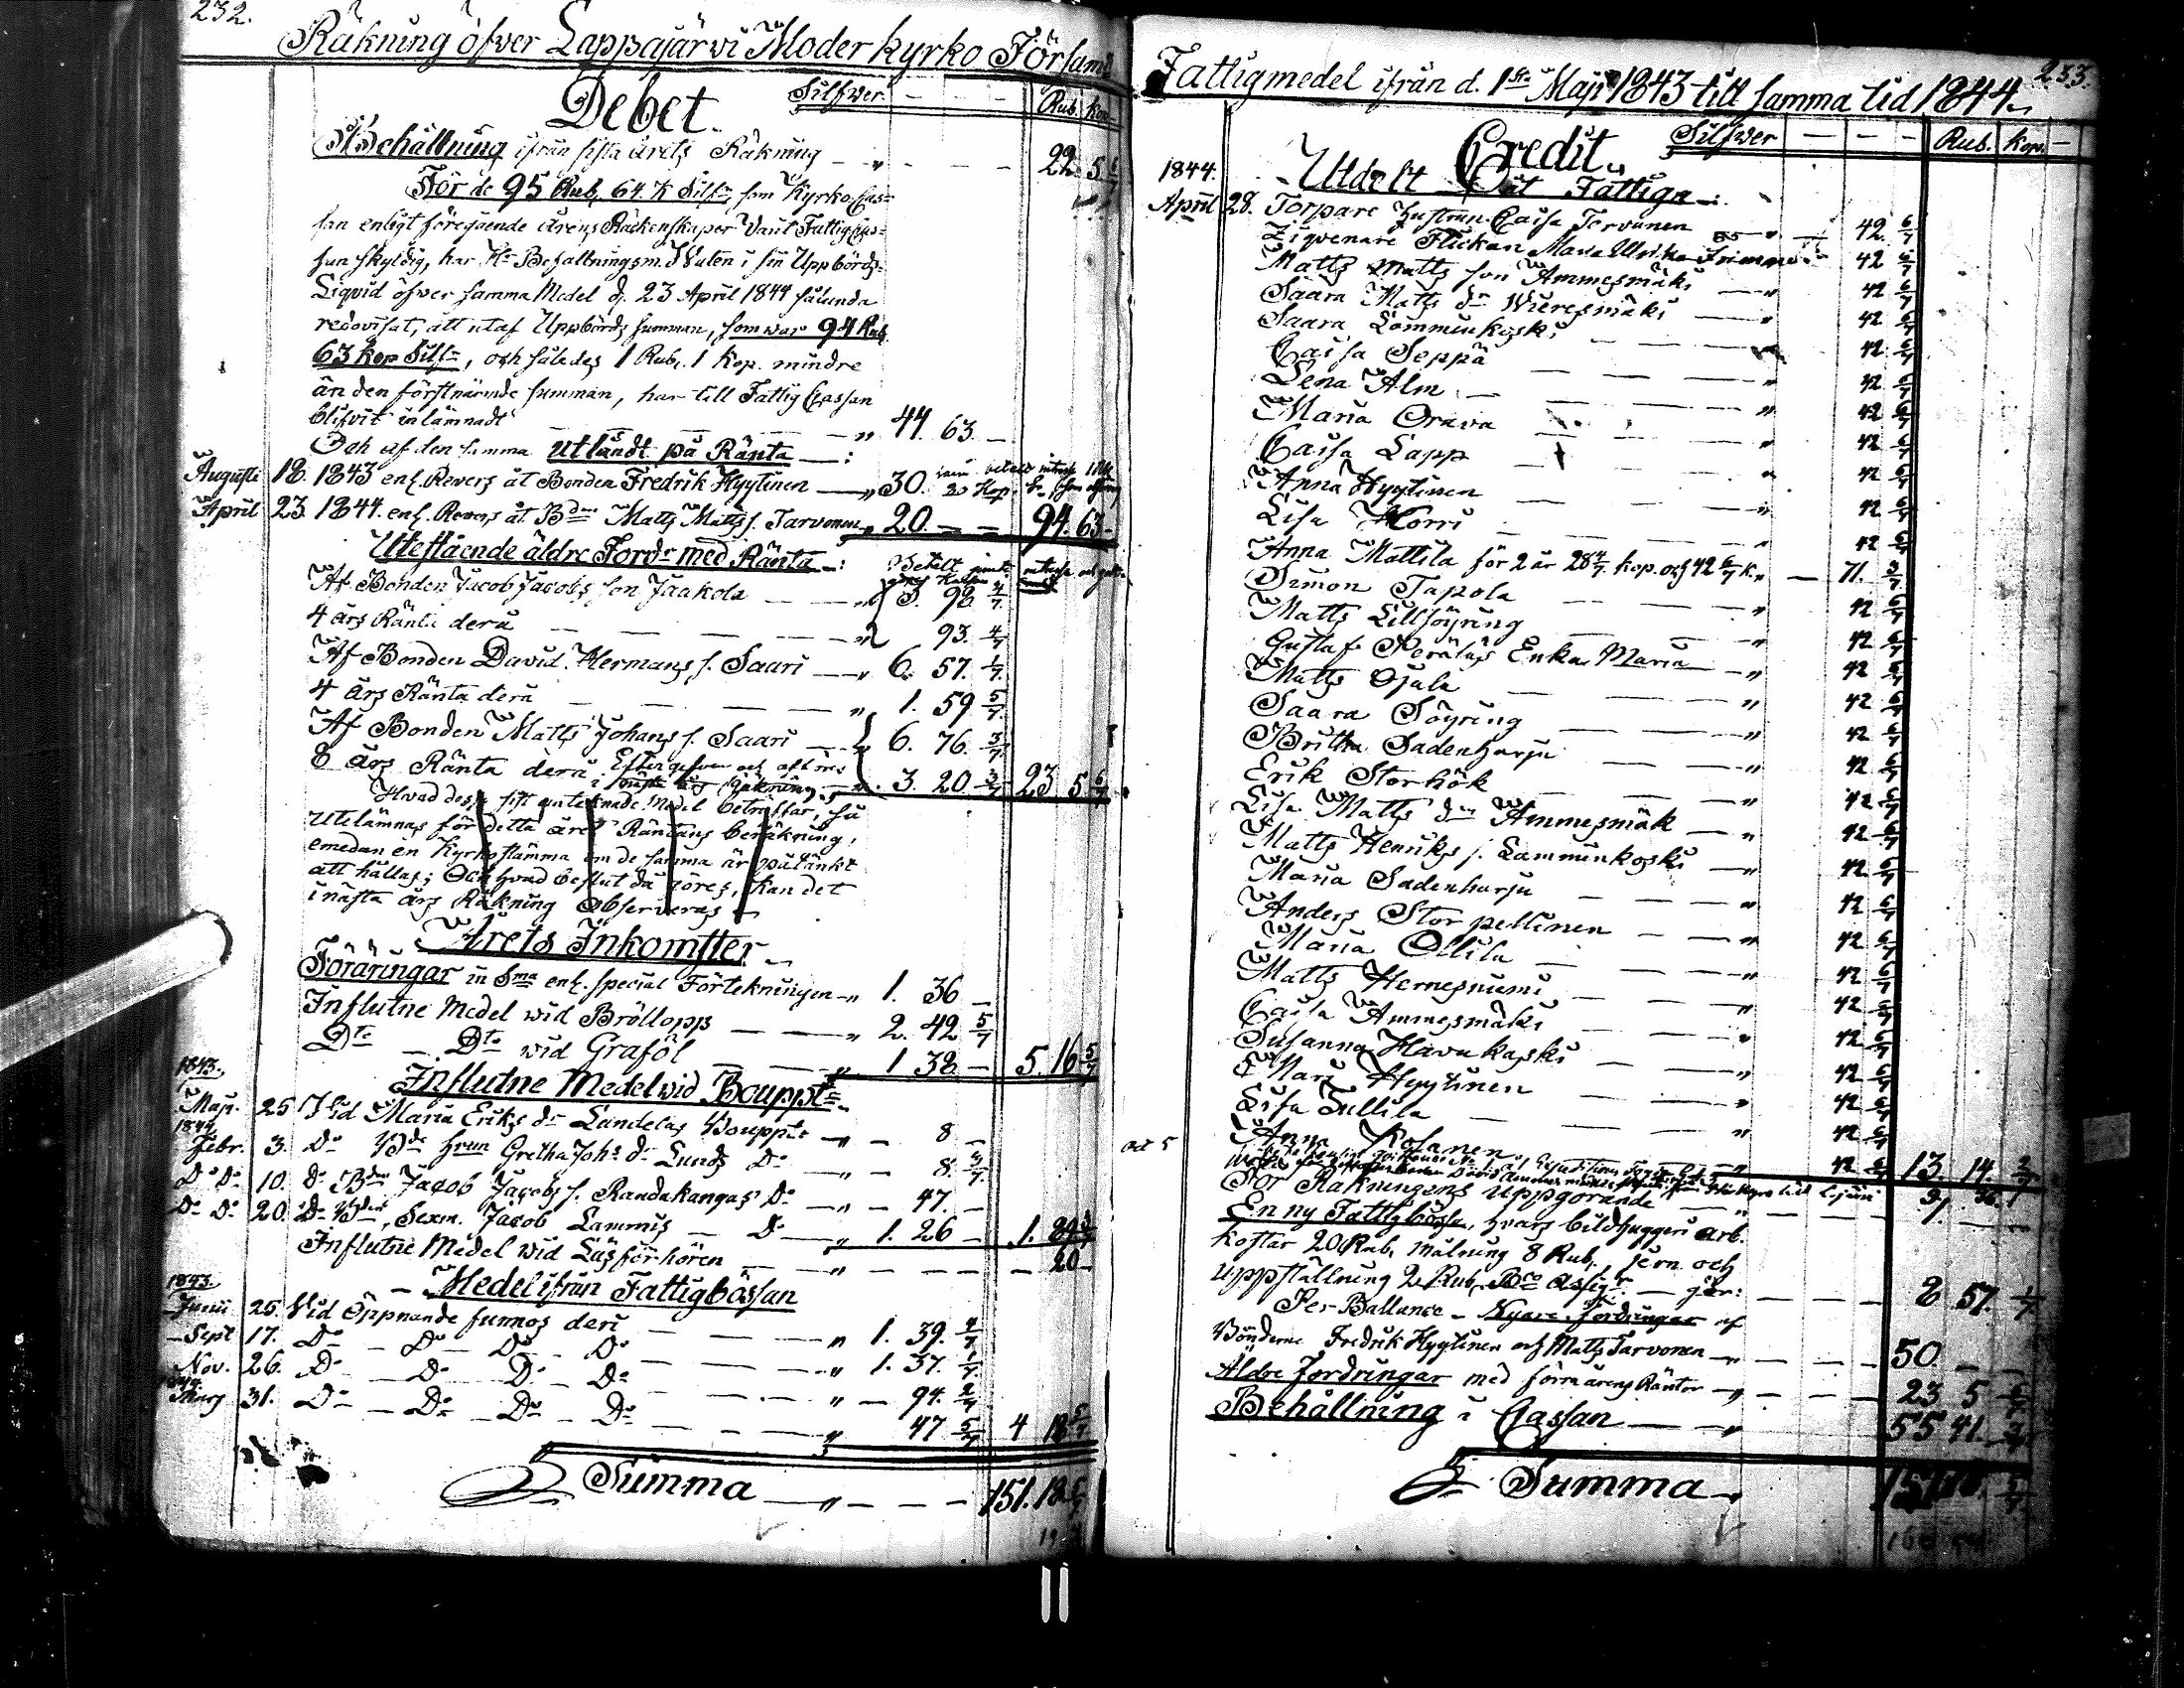 232.
Räkning öfver Lappajärwi Moder kyrko Församl
Debet.
Silfwer — — — Rub. kop.
Behållning ifrån sista årets Räkning — „ — — — 22. 5 6/7
För de 95 Rub. 64. K Silfr, som Kyrko Cas=
san enligt föregående årens Räkenskaper varit Fattig Cas=
san skyldig, har Hr Befallningsm. Wulen i sin Uppbörds=
Liqvid öfwer samma Medel d. 23 April 1844 sålunda
redovisat, att utaf Uppbörds summan, som war 94 Rub.
63 kop Silfr, och således 1 Rub. 1 kop. mindre
än den förstnämnde summan, har till Fattig Cassan
blifvit inlämnadt — — — „ 44. 63. —
Och af den samma utlåndt på Ränta — :
Augusti 18. 1843 enl. Revers åt Bonden Fredrik Hyytinen — „ 30.
April 23. 1844. enl. Revers åt Bdn Matts Matts s. Tarvonen „ 20. — — 94. 63 —
Utestående äldre Fordr med Ränta — :
Af Bonden Jacob Jacobs son Jaakola — „ 3. 98 4/7
4 års Ränta derå — — — — „ 93. 4/7
Af Bonden David Hermans s. Saari — „ 6. 57. 1/7
4 års Ränta derå — — — — „ 1. 59 5/7
Af Bonden Matts Johans s. Saari — „ 6. 76. 3/7
8 års Ränta derå — „ 3. 20 3/7 23 5 6/7
Hvad dessa sist antecknade Medel beträffar, så
utelämnas för detta året Räntans beräkning,
emedan en Kyrkostämma om de samma är påtänkt
att hållas; Och hvad beslut då göres, kan det
i nästa års Räkning observeras —
Årets Inkomster —
Föräringar in Sma enl. special Förtekningen — „ 1. 36 —
Influtne Medel wid Bröllopp — — „ 2. 42 5/7
Dto — Dto wid Graföl — — „ 1 38 — 5. 16 5/7
Influtne Medel wid Bouppt —
1843.
Maji. 25 Wid Maria Eriks dr Lundelas Bouppts — „ — 8 —
1844
Febr. 3. Do Bde hrun Gretha Johs dr Lunds Do — „ — 8. 4/7
Do Do 10. Do Bdn Jacob Jacobs s. Randakangas Do — „ — 47. —
Do Do 20. Do Bden, Sexm. Jacob Lammis — Do — „ 1. 26 — 1. 89 4/7
Influtne Medel wid Läsförhören — — „ — — — 20 —
— Medel ifrån Fattigbössan
1843.
Junii 25. Vid Öppnande funnos deri — — — „ 1. 39. 4/7
Sept 17. Do — Do — Do — Do — — „ 1. 37. 1/7
Nov. 26. Do — Do Do — Do — — „ — 94. 2/7
Mars 31. Do — Do — Do — Do — — „ 47 5/7 4 18 5/7
Summa — „ — — — 151. 18 5/7
233.
Fattigmedel ifrån d. 1sta Maji 1843 till samma tid 1844.
Credit.
Silfwer — — — Rub. kop. —
1844. Utdelt åt Fattiga — :
April 28. Torpare hustrun Caisa Tervanen — „ — 42. 6/7
Ziguenare Flickan Maria Ulrika — 42 6/7
Matts Matts son Ammesmäki — „ 42 6/7
Saara Matts dr Wieresmäki — „ 42 6/7
Saara Lamminkoski — — „ 42 6/7
Caisa Seppä — — — „ 42 6/7
Lena Alm — — — „ 42 6/7
Maria Orava — — — „ 42 6/7
Caisa Lapp — — — „ 42 6/7
Anna Hyytinen — — — „ 42 6/7
Lisa Horri — — — „ 42 6/7
Anna Mattila för 2 år 28 4/7 kop. och 42 6/7 k. „ — 71. 3/7
Simon Tapola — — — „ 42 6/7
Matts Lillsöyring — — „ 42 6/7
Gustaf Peräläs Enka Maria — „ 42 6/7
Matts Ojala — — — „ 42 6/7
Saara Söyring — — — „ 42 6/7
Britha Sadenharju — — „ 42 6/7
Erik Storhök — — — „ 42 6/7
Lisa Matts dr Ammesmäk — „ 42 6/7
Matts Henriks s. Lamminkoski — „ 42 6/7
Maria Sadenharju — — „ 42 6/7
Anders Storpellinen — — „ 42 6/7
Maria Ollila — — — „ 42 6/7
Matts Hernesniemi — — „ 42 6/7
Caisa Ammesmäki — — „ 42 6/7
Susanna Havukoski — — „ 42 6/7
Mari Hyytinen — — — „ 42 6/7
Lisa Tullila — — — „ 42 6/7
Anna Kolanen — „ 42 6/7 13. 14. 2/7
För Räkningens uppgörande — „ — — —
En ny Fattigbössa, hvars bildhuggeri arb.
kostar 20 Rub, målning 8 Rub, jern och
uppställning 2 Rub, Bco Assigr. — gör: — — — 8 57. 1/7
Per Ballance — Nyare fordringar af
Bönderne Fredrik Hyytinen och Matts Tarvonen — „ — — — 50. — —
Äldre fordringar med förra årens Räntor — „ — — — 23 5 6/7
Behållning i Cassan — „ — — — 55 41.
Summa — „